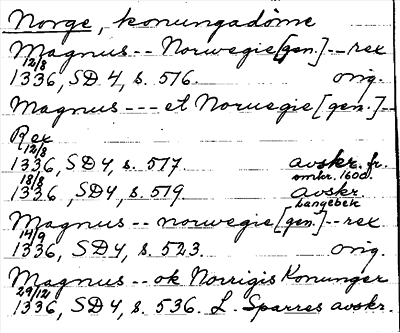 Norge, konungadöme
Magnus -- Norwegie [gen.] -- rex
12/8
1336, SD 4, s. 516. orig.
Magnus --- et Noruegie [gen.] --
Rex
12/8
1336, SD4, s. 517 avskr. fr.
omkr. 1600.
18/8
1336, SD4, s. 519 avskr.
Langebek
Magnus -- norwegie [gen.] -- rex
14/9
1336, SD4, s. 523. orig.
Magnus -- ok Norrigis Konunger
29/12
1336, SD4, s. 536. L. Sparres avskr.